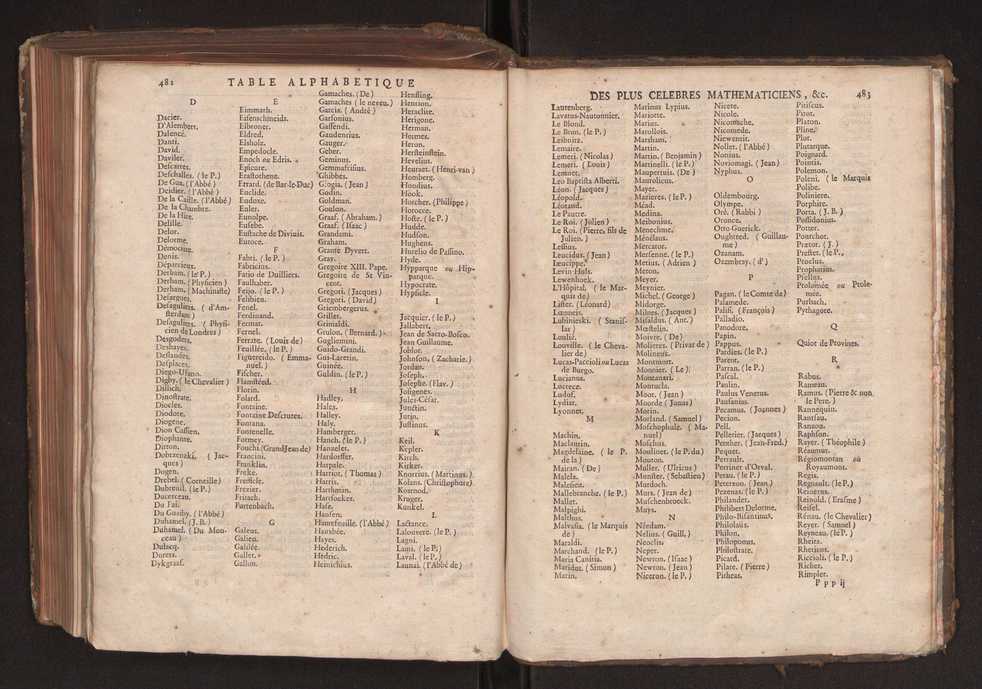 482 TABLE ALPHABETIQUE
D
Dacier.
D'Alembert.
Dalencé.
Danti.
David.
Daviler.
Descartes.
Deschalles. (le P.)
De Gua. (l'Abbé)
Deidier. (l'Abbé)
De la Caille. (l'Abbé)
De la Chambre.
De la Hire.
Delisle.
Delor.
Delorme.
Démocrite.
Denis.
Déparcieux.
Derham. (le P.)
Derham. (Physicien)
Derham. (Machiniste)
Desargues.
Desaguliers. (d'Amsterdam)
Desaguliers. (Physicien de Londres)
Desgodets.
Deshayes.
Deslandes.
Desplaces.
Diego-Ufano.
Digby. (le Chevalier)
Dillich.
Dinostrate.
Diocles.
Diodore.
Diogene.
Dion Cassien.
Diophante.
Ditton.
Dobrzenski. (Jacques)
Dogen.
Drebel. (Corneille)
Dubreuil. (le P.)
Ducerceau.
Du Fai.
Du Guaiby. (l'Abbé)
Duhamel. (J. B.)
Duhamel. (Du Monceau)
Dulacq.
Durers.
Dykgraaf.
E
Eimmarh.
Eisenschmeids.
Elbroner.
Eldred.
Elsholz.
Empedocle.
Enoch ou Edris.
Epicure.
Erastothene.
Errard. (de Bar-le-Duc)
Euclide.
Eudoxe.
Euler.
Eunolpe.
Eusebe.
Eustache de Divinis.
Eutoce.
F
Fabri. (le P.)
Fabricius.
Fatio de Duilliers.
Faulhaber.
Feijo. (le P.)
Felibien.
Fenel.
Ferdinand.
Fermat.
Fernel.
Ferrate. (Louis de)
Feuillée. (le P.)
Figuereido. (Emmanuel)
Fischer.
Flamsteed.
Florin.
Folard.
Fontaine.
Fontaine Descrutes.
Fontana.
Fontenelle.
Formey.
Fouchi. (GrandJean de)
Francini.
Franklin.
Freke.
Frenicle.
Frezier.
Fritach.
Furtenbach.
G
Galeus.
Galien.
Galilée.
Gallet.
Gallon.
Gamaches. (De)
Gamaches (le neveu.)
Garcia. (André)
Garsonius.
Gassendi.
Gaudentius.
Gauger.
Geber.
Geminus.
Gemmafrisius.
Ghibbes.
Giorgia. (Jean)
Godin.
Goldman.
Goulon.
Graaf. (Abraham.)
Graaf. (Isaac)
Grandami.
Graham.
Grante Dyvert.
Gray.
Gregoire XIII. Pape.
Gregoire de St Vincent.
Gregori. (Jacques)
Gregori. (David)
Griembergerus.
Grillet.
Grimaldi.
Grulon. (Bernard.)
Gugliemini.
Guido-Grandi.
Gus-Laretin.
Guinée.
Guldin. (le P.)
H
Hadley.
Hales.
Halley.
Haly.
Hamberger.
Hanch. (le P.)
Hanzelet.
Hardorffer.
Harpale.
Harriot. (Thomas)
Harris.
Harthman.
Hartsoeker.
Hase.
Hausen.
Hautefeuille. (l'Abbé)
Hauxbée.
Hayes.
Hederich.
Hedric.
Heinichius.
Hensling.
Hention.
Heraclite.
Herigone.
Herman.
Hermes.
Heron.
Hersteinstein.
Hevelius.
Heuraet. (Henri-van)
Homberg.
Hondius.
Hook.
Horcher. (Philippe)
Horocce.
Hoste. (le P.)
Hudde.
Hudson.
Hughens.
Hurelio de Passino.
Hyde.
Hypparque ou Hipparque.
Hypocrate.
Hypsicle.
I
Jacquier. (le P.)
Jallabert.
Jean de Sacro-Bosco.
Jean Guillaume.
Joblot.
Johnson. (Zacharie.)
Jordan.
Joseph.
Josephe. (Flav.)
Josigenes.
Jules-César.
Junctin.
Jurin.
Justinus.
K
Keil.
Kepler.
Kirch.
Kirker.
Knorrius. (Martinus.)
Kolans. (Christophore)
Kosmod.
Kruger.
Kunkel.
L
Lactance.
Lalouvere. (le P.)
Lagni.
Lami. (le P.)
Laval. (le P.)
Launai. (l'Abbé de)
DES PLUS CELEBRES MATHEMATICIENS, &c. 483
Lautenberg.
Lavatus-Nautonnier.
Le Blond.
Le Brun. (le P.)
Leibnitz.
Lemaire.
Lemeri. (Nicolas)
Lemeri. (Louis)
Lemnet.
Leo Baptista Alberti.
Léon. (Jacques)
Léopold.
Léotaud.
Le Pautre.
Le Roi. (Julien)
Le Roi. (Pierre, fils de Julien.)
Lessius.
Leucidus. (Jean)
Leucippe.
Levin-Hulf.
Lewenhoek.
L'Hôpital. (le Marquis de)
Lister. (Léonard)
Lœnneis.
Lubinieski. (Stanislas)
Loulié.
Louville. (le Chevalier de)
Lucas-Paccioli ou Lucas de Burgo.
Lucianus.
Lucrece.
Ludolf.
Lydiat.
Lyonnet.
M
Machin.
Maclaurin.
Magdelaine. (le P. de la)
Mairan. (De)
Malela.
Malezieu.
Mallebranche. (le P.)
Mallet.
Malpighi.
Malthus.
Malvasia. (le Marquis de)
Maraldi.
Marchand. (le P.)
Maria Canitia.
Maridus. (Simon)
Marin.
Marinus Lypius.
Mariotte.
Marius.
Marollois.
Marsham.
Martin.
Martin. (Benjamin)
Martinelli. (le P.)
Maupertuis. (De)
Maurolicus.
Mayer.
Mazieres. (le P.)
Méad.
Medina.
Meibonius.
Menechme.
Ménélaus.
Mercator.
Mersenne. (le P.)
Metius. (Adrien)
Meton.
Meyer.
Meynier.
Michel. (George)
Midorge.
Milnes. (Jacques)
Misaldus. (Ant.)
Mœstelin.
Moivre. (De)
Molieres. (Privat de)
Molineux.
Montmort.
Monnier. (Le)
Montanari.
Montucla.
Moor. (Jean)
Moorde. (Jonas)
Morin.
Morland. (Samuel)
Moschophule. (Manuel)
Moschus.
Moulinet. (le P. du)
Mouton.
Muller. (Ulricus)
Munster. (Sebastien)
Murdoch.
Murs. (Jean de)
Musschenbroeck.
Muys.
N
Néedam.
Nelius. (Guill.)
Neoclis.
Neper.
Newton. (Isaac)
Newton. (Jean)
Niceron. (le P.)
Nicete.
Nicole.
Nicomache.
Nicomede.
Niewentit.
Nollet. (l'Abbé)
Nonius.
Noviomagi. (Jean)
Nyphus.
O
Oldembourg.
Olympe.
Oré. (Rabbi)
Oronce.
Otto Guerick.
Oughtred. (Guillaume)
Ozanam.
Ozembray. (d')
P
Pagan. (le Comte de)
Palamede.
Palissi. (François)
Palladio.
Panodore.
Papin.
Pappus.
Pardies. (le P.)
Parent.
Parran. (le P.)
Pascal.
Paulin.
Paulus Venetus.
Pausanius.
Pecamus. (Joannes)
Pecion.
Pell.
Pelletier. (Jacques)
Penther. (Jean-Fred.)
Pequet.
Perrault.
Perrinet d'Orval.
Petau. (le P.)
Peterzon. (Jean)
Pezenas. (le P.)
Philander.
Philibert Delorme.
Philo-Bisantinus.
Philolaüs.
Philon.
Philoponus.
Philostrate.
Picard.
Pilate. (Pierre)
Pitheas.
Pitiscus.
Pitot.
Platon.
Pline.
Plot.
Plutarque.
Poignard.
Pointis.
Polemon.
Poleni. (le Marquis
Polibe.
Poliniere.
Porphire.
Porta. (J. B.)
Possidonius.
Potter.
Pourchot.
Prætor. (J.)
Prestet. (le P.)
Proclus.
Prophatius.
Psellus.
Ptolomée ou Ptolemée.
Purbach.
Pythagore.
Q
Quiot de Provines.
R
Rabus.
Rameau.
Ramus. (Pierre & non le Pere.)
Rannequin.
Rantsau.
Ranzou.
Raphson.
Rayer. (Théophile)
Réaumur.
Régiomontan ou Royaumont.
Regis.
Regnault. (le P.)
Reinerus.
Reinold. (Erasme)
Reisel.
Rénau. (le Chevalier)
Reyer. (Samuel)
Reyneau. (le P.)
Rheita.
Rheticus.
Riccioli. (le P.)
Richer.
Rimpler.
P p p ij